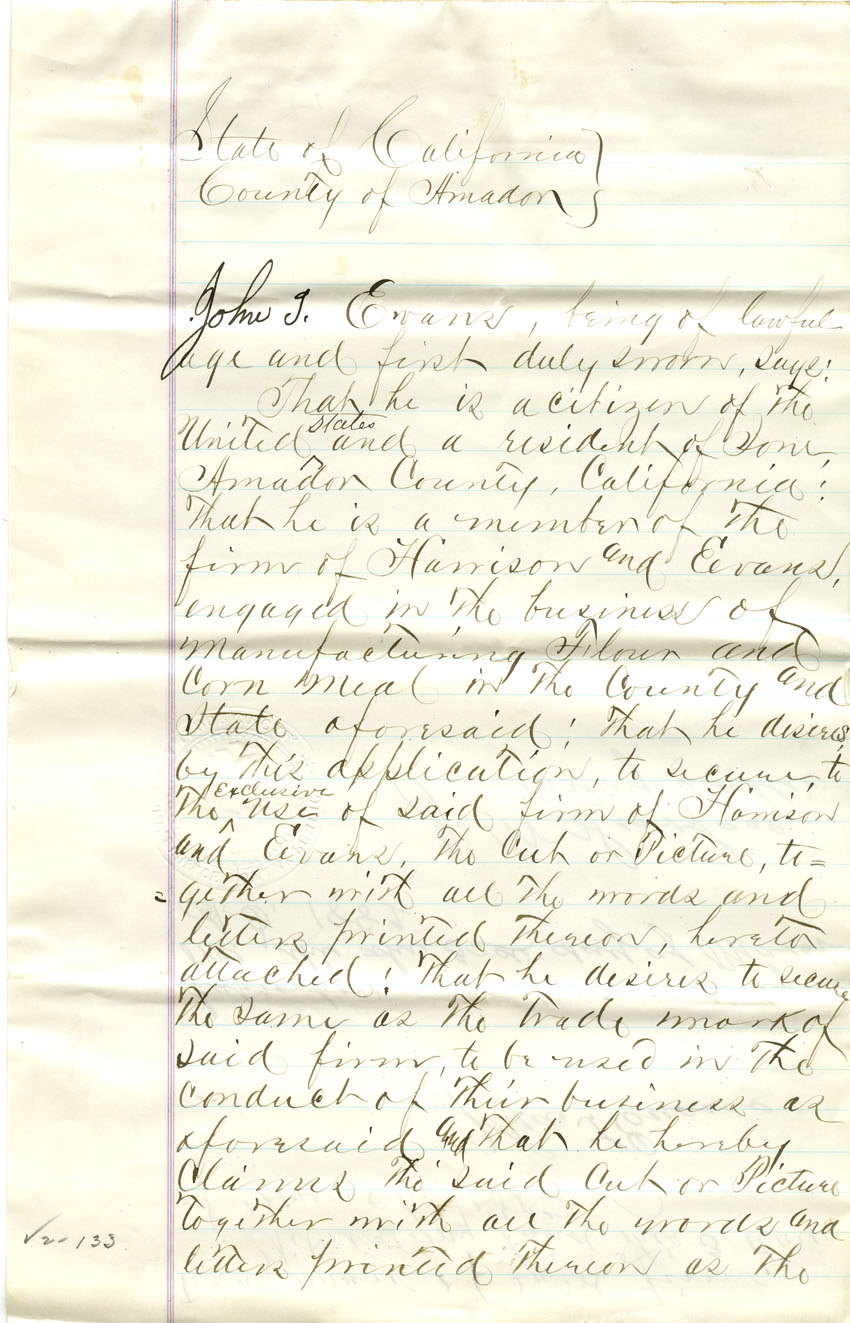 State of California }
County of Amador }
John I. Evans, being of lawful
age and first duly sworn, says:
That he is a citizen of the
United States and a resident of Ione
Amador County, California;
That he is a member of the
firm of Harrison and Evans,
engaged in the business of
manufacturing Flour and
Corn Meal in the County and
State aforesaid; That he desires
by this application, to secure, to
the exclusive use of said firm of Harrison
and Evans, the Cut or Picture, to=
=gether with all the words and
letters printed thereon, hereto
attached; That he desires to secure
the same as the trade mark of
said firm, to be used in the
conduct of their business as
aforesaid and that he hereby
Claims the said Cut or Picture
together with all the words and
letters printed thereon as the
133